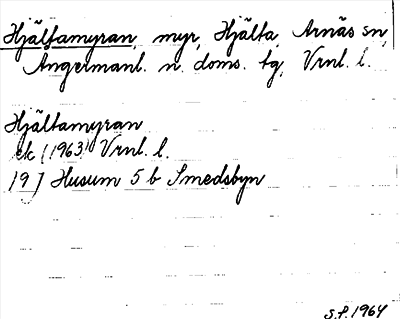 Hjältamyran, myr, Hjälta, Arnäs sn,
Ångermanl. n. doms. tg, Vrnl. l.
Hjältamyran
ek (1963) Vrnl. l.
19 J Husum 5 b Smedsbyn
S.F. 1964